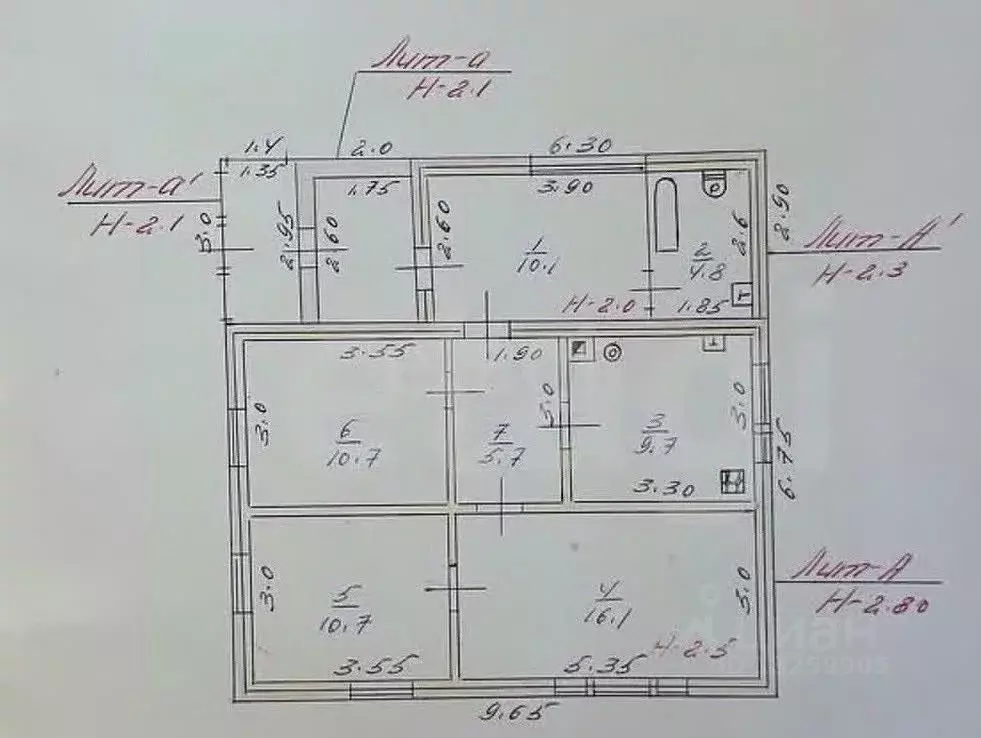 Лит-а
Н-2.1
1.4
2.0
6.30
1.35
1.75
3.90
Лит-а'
Н-2.1
3.0
2.95
2.60
2.60
1
10.1
2
4.8
2.6
2.90
Лит-А'
Н-2.3
Н-2.0
1.85
3.55
1.90
3.0
6
10.7
7
5.7
3.0
3
9.7
3.0
3.30
6.75
3.0
5
10.7
3.55
4
16.1
3.0
Н-2.5
5.35
Лит-А
Н-2.80
9.65